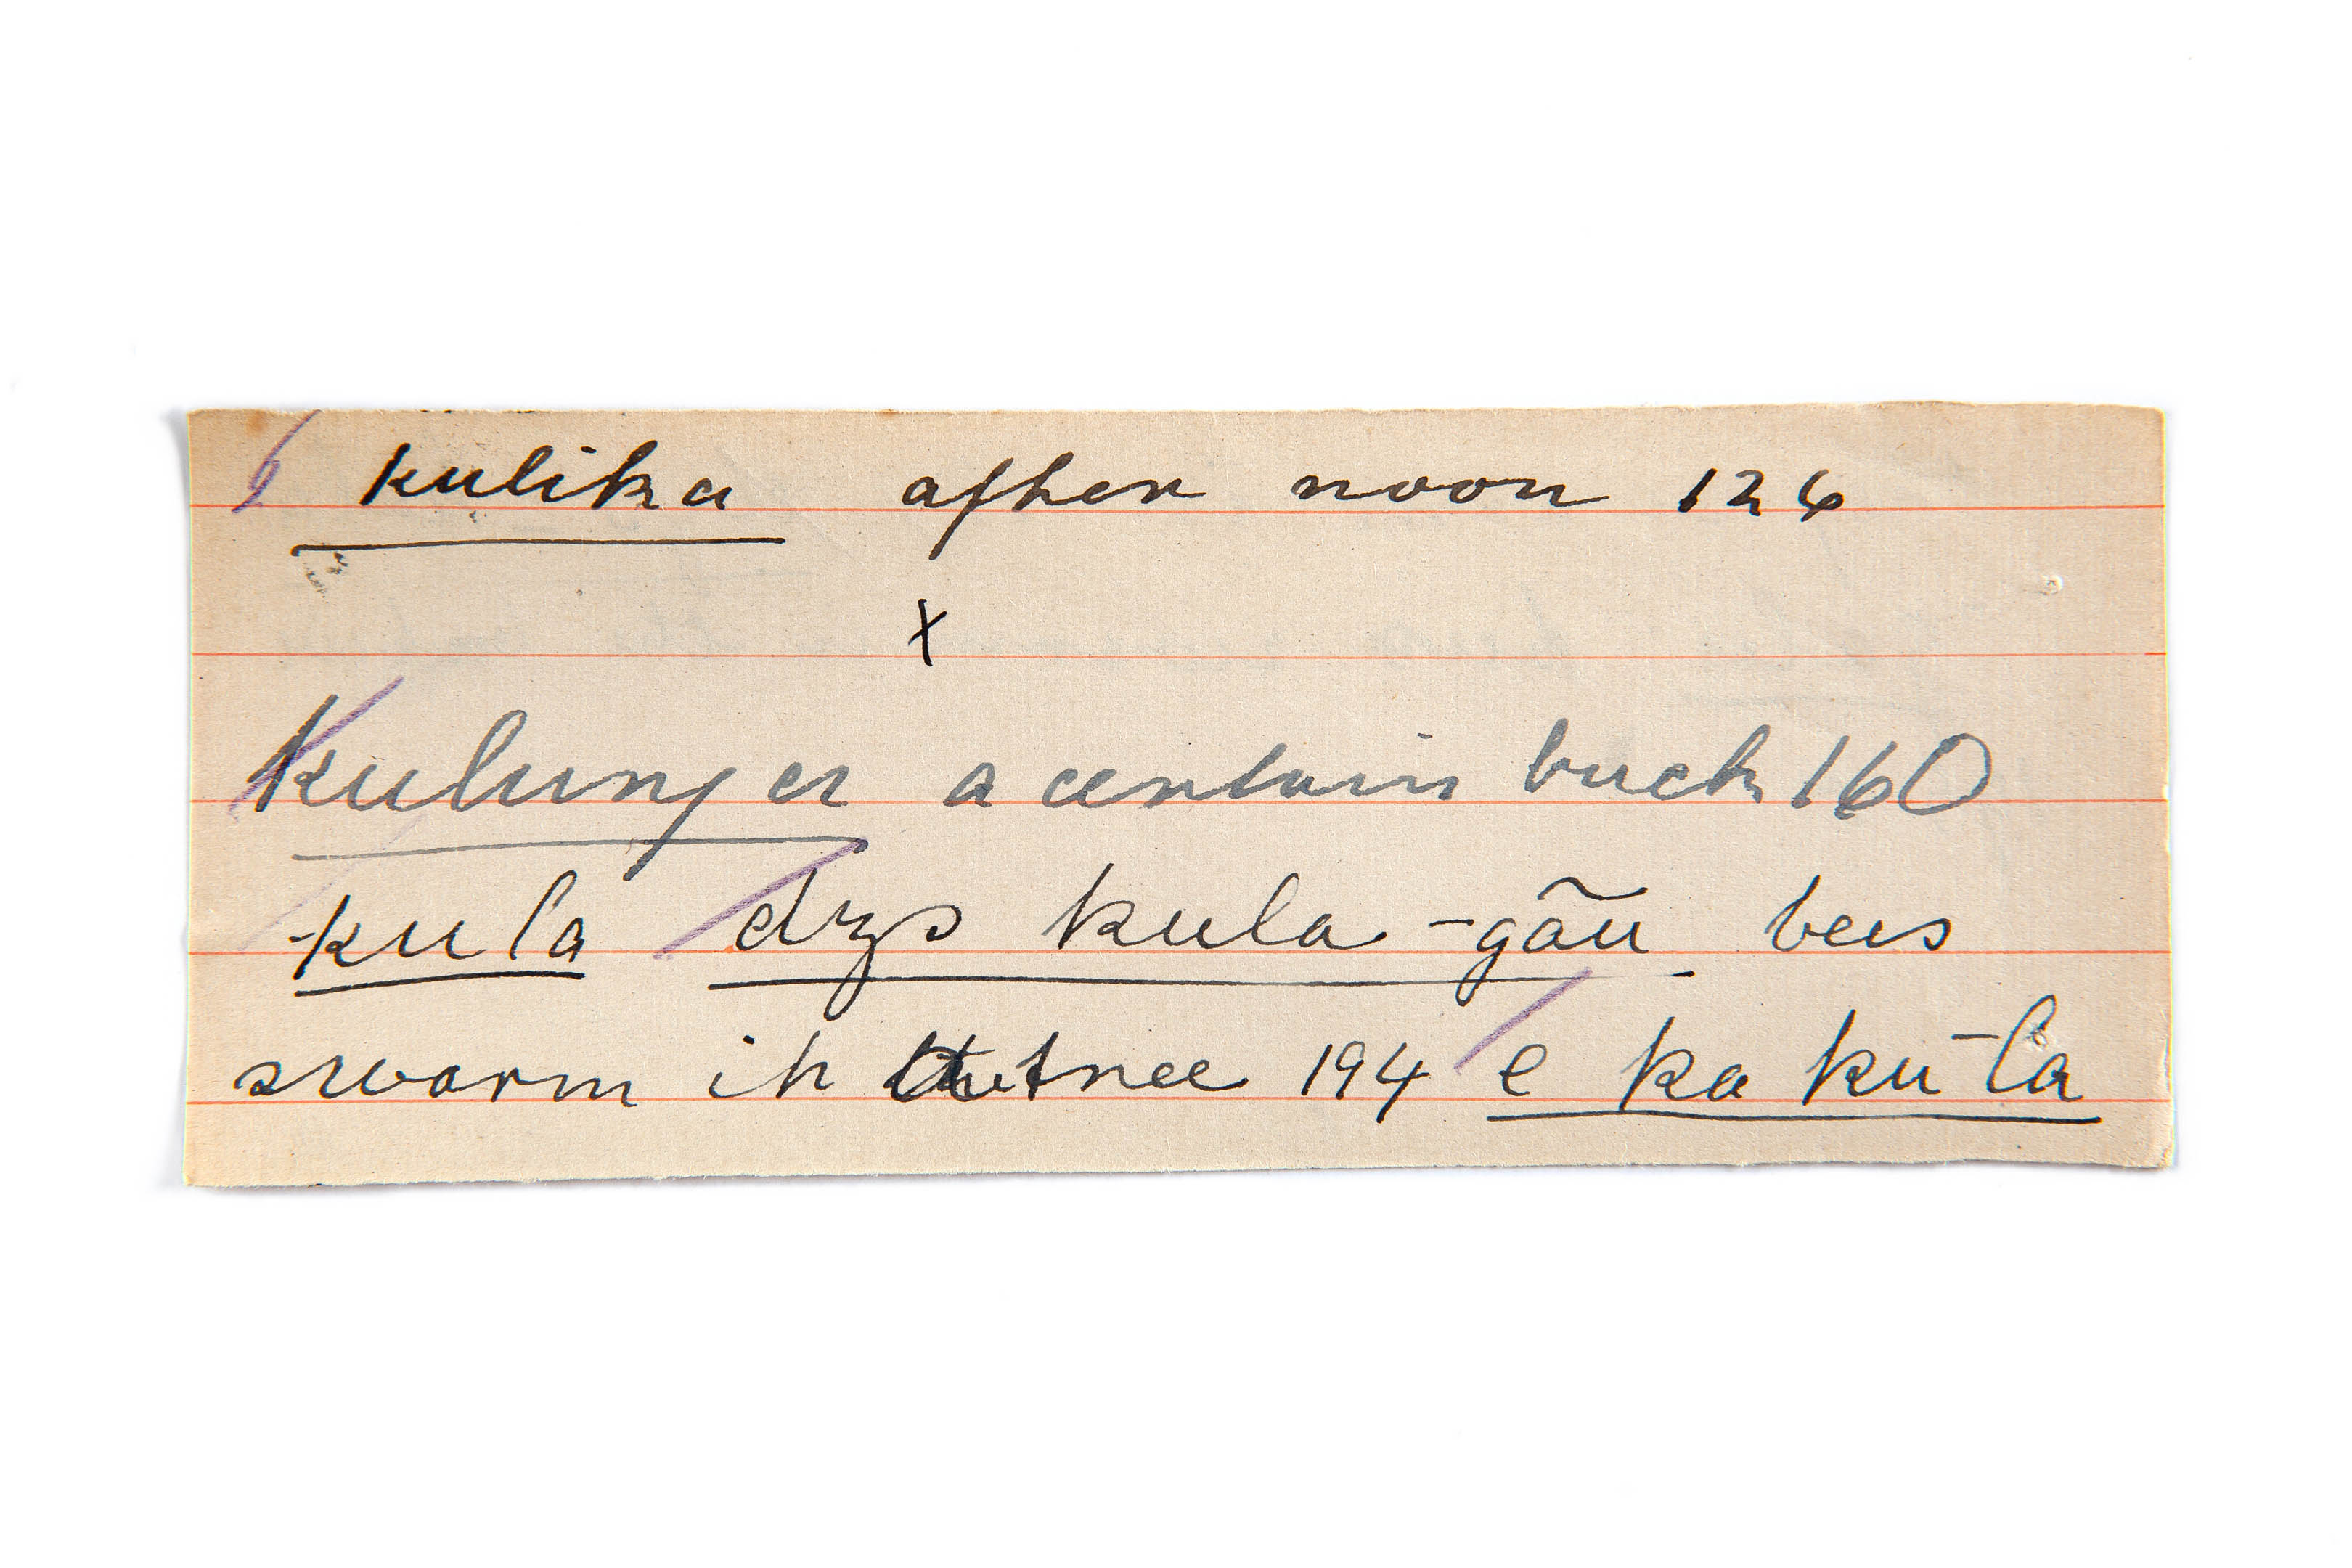 kulika after noon 126
x
Kulunga a certain buck 160
-kula dzs kula -gãu bees
swarm in tree 194 e ka ku-la